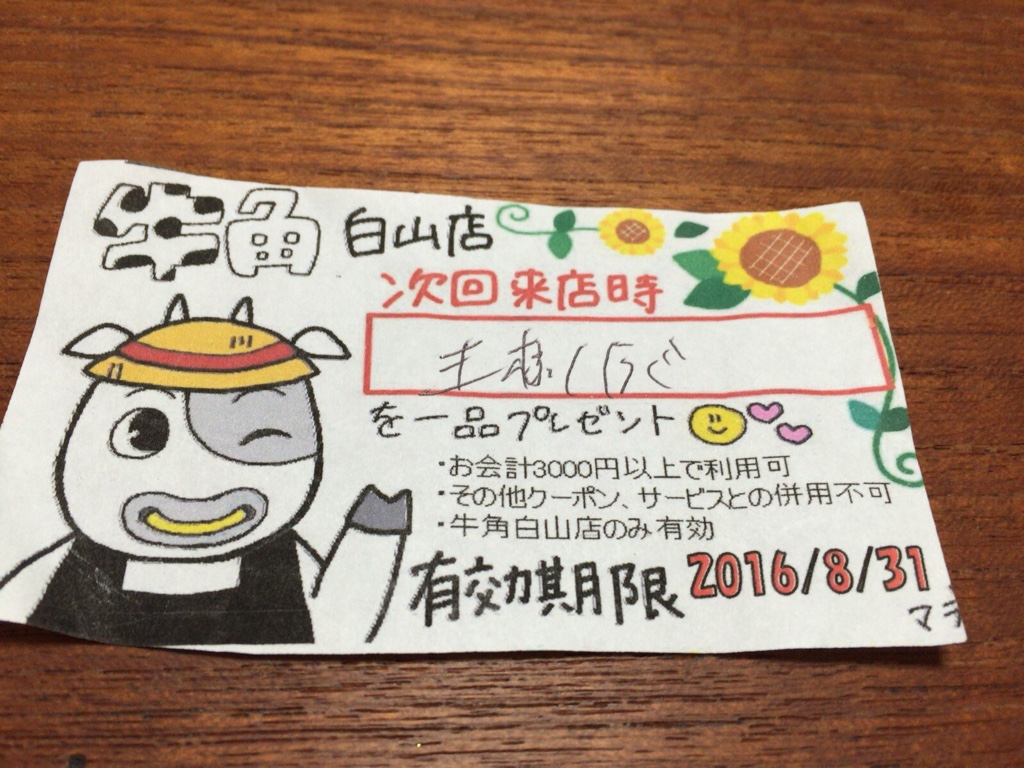 牛角 白山店
次回来店時
を一品プレゼント
・お会計3000円以上で利用可
・その他クーポン、サービスとの併用不可
・牛角白山店のみ有効
有効期限 2016/8/31